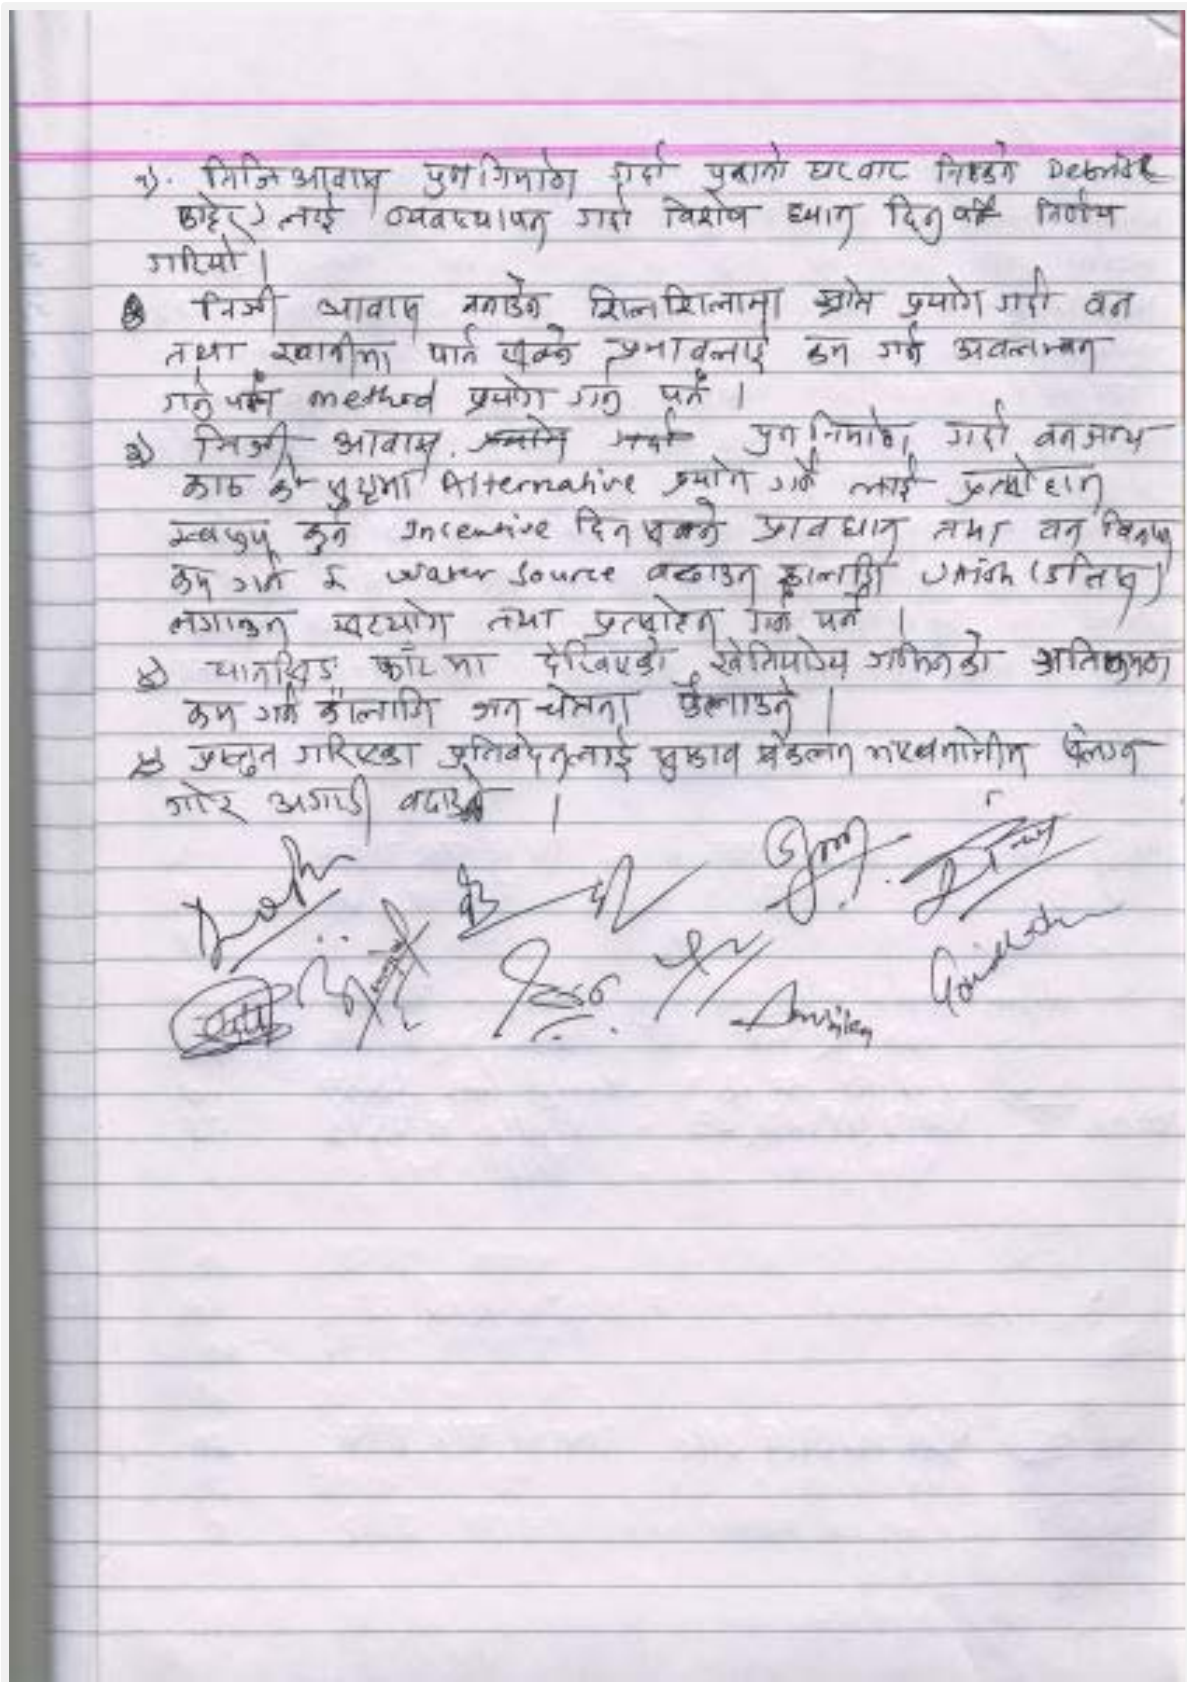 १). निजि आवास पुर्ननिर्माण गर्दा पुरानो घरबाट निस्कने Debris
लाई व्यवस्थापन गर्दा विशेष ध्यान दिनु पर्ने निर्णय
गरियो ।
निजी आवास बनाउने शिलशिलामा स्रोत प्रयोग गर्दा वन
तथा खानीमा पार्न सक्ने प्रभावलाई कम गर्न अवलम्बन
गर्नु पर्ने method प्रयोग गर्नु पर्ने ।
३) निजी आवास पुननिर्माण गर्दा वनजन्य
काठ को Alternative प्रयोग गर्ने लाई प्रत्सोहान
स्वरुप कुनै Incentive दिन सक्ने प्रावधान तथा वन विनास
कम गर्न र water source बढाउन कालागि Utish (उत्तिस)
लगाउन सहयोग तथा प्रत्सोहन गर्नु पर्ने ।
४) फाँटमा देखिएको खेतियोग्य जमिनको अतिक्रमण
कम गर्न कालागि जन चेतना फैलाउने ।
५) प्रस्तुत गरिएका प्रतिवेदनलाई सुझाव संकलन संलग्न
गरेर अगाडी बढाउने ।